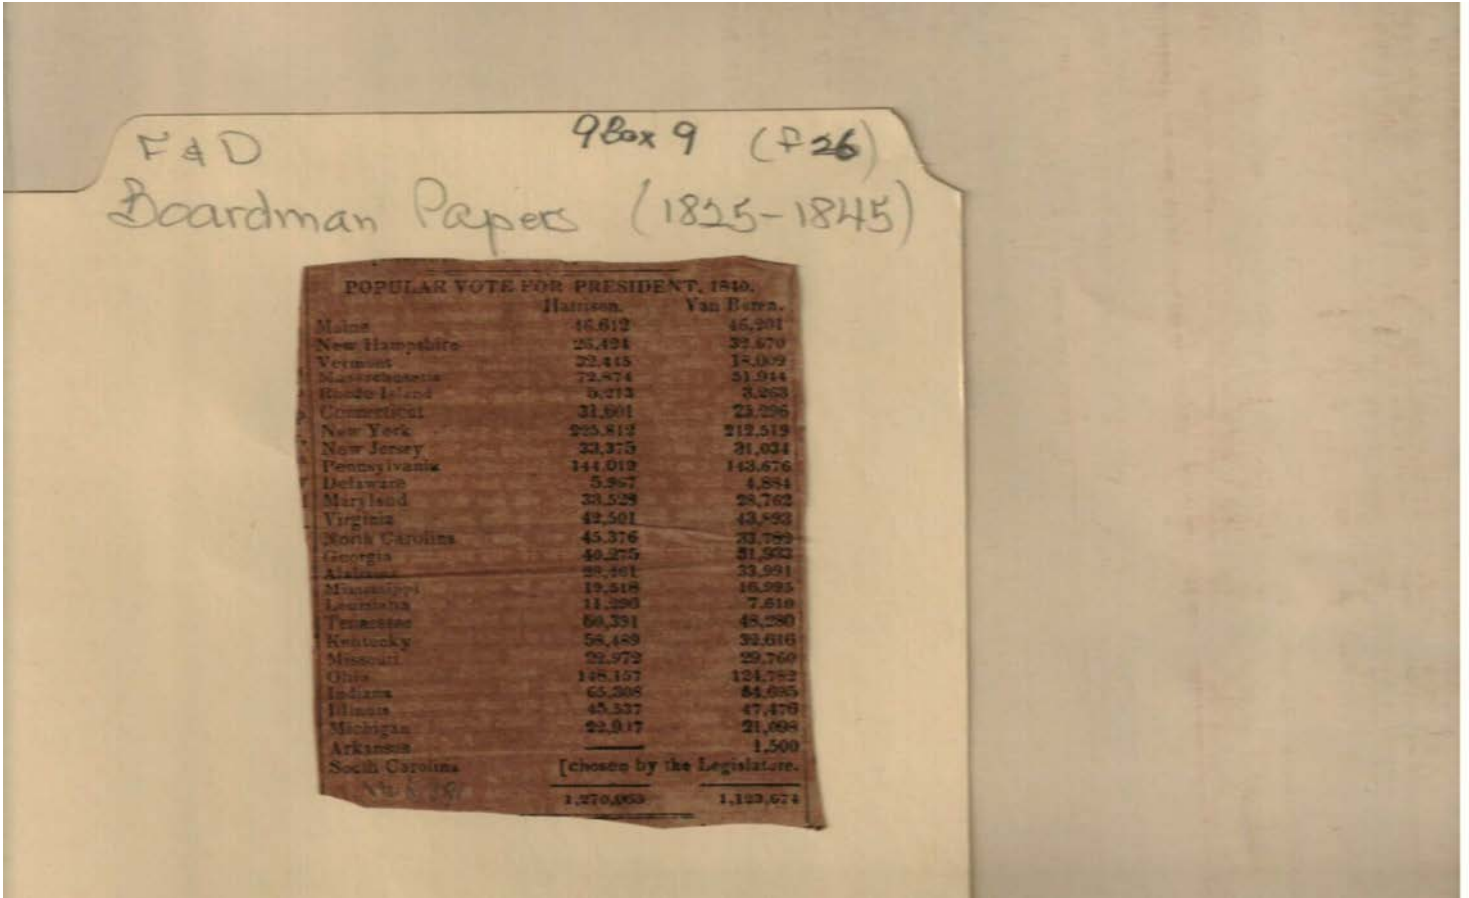 F & D 9 Box 9 (f 26)
Boardman Papers (1825-1845)
POPULAR VOTE FOR PRESIDENT, 1840.
Harrison. Van Buren.
Maine 46,612 46,201
New Hampshire 26,434 32,670
Vermont 32,445 18,009
Massachusetts 72,874 51,944
Rhode Island 5,213 3,263
Connecticut 31,601 25,296
New York 225,812 212,519
New Jersey 33,375 31,034
Pennsylvania 144,019 143,676
Delaware 5,967 4,884
Maryland 33,529 28,762
Virginia 42,501 43,893
North Carolina 45,376 33,782
Georgia 40,275 31,932
Alabama 33,991
Mississippi 19,518 16,995
Louisiana 11,296 7,616
Tennessee 60,391 48,280
Kentucky 58,489 32,616
Missouri 22,972 29,760
Ohio 148,157 124,782
Indiana 65,308
Illinois 45,537 47,476
Michigan 22,917 21,098
Arkansas —— 1,500
South Carolina [chosen by the Legislature.
1,123,674